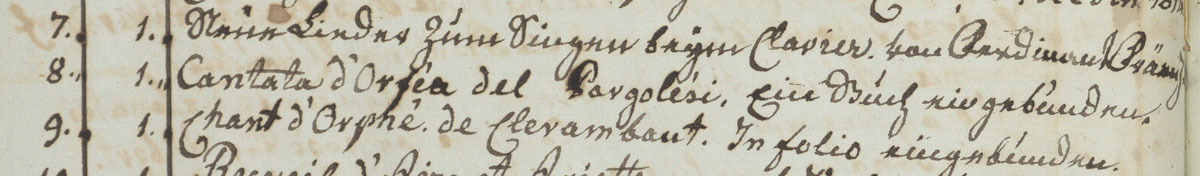 7. 1. Neüe Lieder zum Singen beÿm Clavier. von Ferdinant Fränzl
8. 1. Cantata d'Orfea del Pargolesi, ein Buch eingebunden.
9. 1. Chant d'Orphé. de Clerambaut. In folio eingebunden.
1.